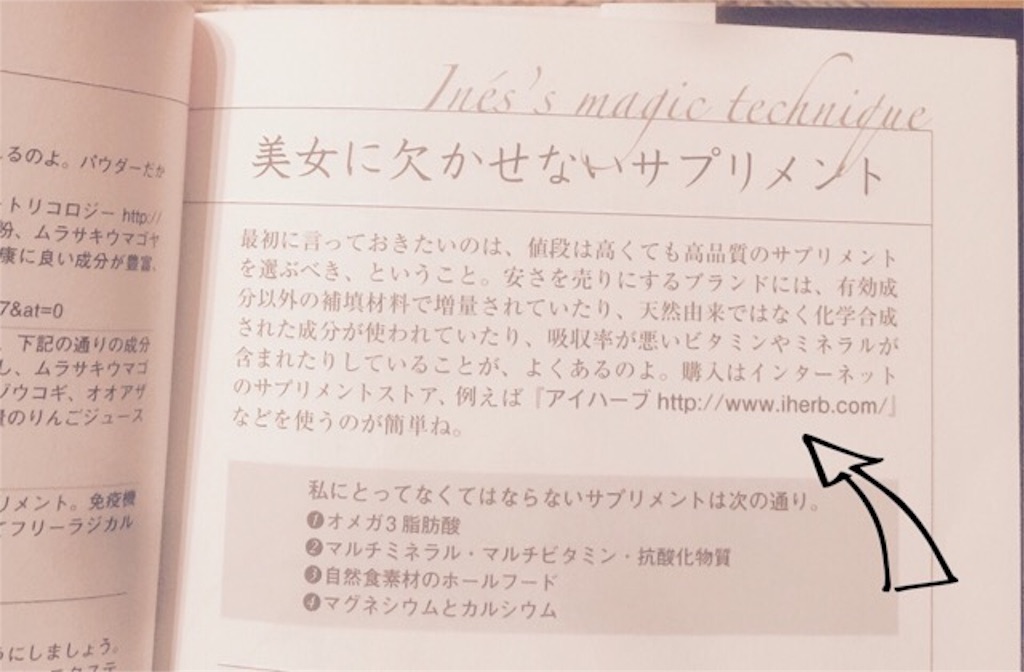 るのよ。パウダーだか
トリコロジー http://
粉、ムラサキウマゴヤ
康に良い成分が豊富、
7&at=0
下記の通りの成分
し、ムラサキウマゴ
ゾウコギ、オオアザ
のりんごジュース
リメント。免疫機
てフリーラジカル
うにしましょう。
Inés's magic technique
美女に欠かせないサプリメント
最初に言っておきたいのは、値段は高くても高品質のサプリメント
を選ぶべき、ということ。安さを売りにするブランドには、有効成
分以外の補填材料で増量されていたり、天然由来ではなく化学合成
された成分が使われていたり、吸収率が悪いビタミンやミネラルが
含まれたりしていることが、よくあるのよ。購入はインターネット
のサプリメントストア、例えば『アイハーブ http://www.iherb.com/』
などを使うのが簡単ね。
私にとってなくてはならないサプリメントは次の通り。
❶オメガ3脂肪酸
❷マルチミネラル・マルチビタミン・抗酸化物質
❸自然食素材のホールフード
❹マグネシウムとカルシウム